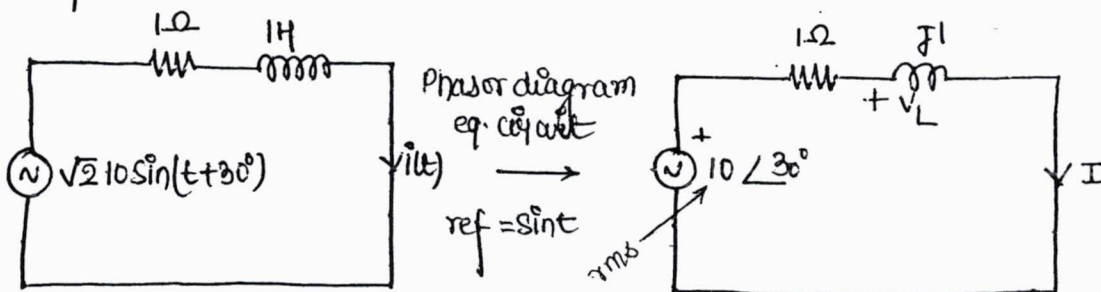 1Ω
1H
√2 10 sin(t+30°)
i(t)
Phasor diagram
eq. circuit
ref = sint
1Ω
J1
+ VL
+
10 ∠30°
rms
I